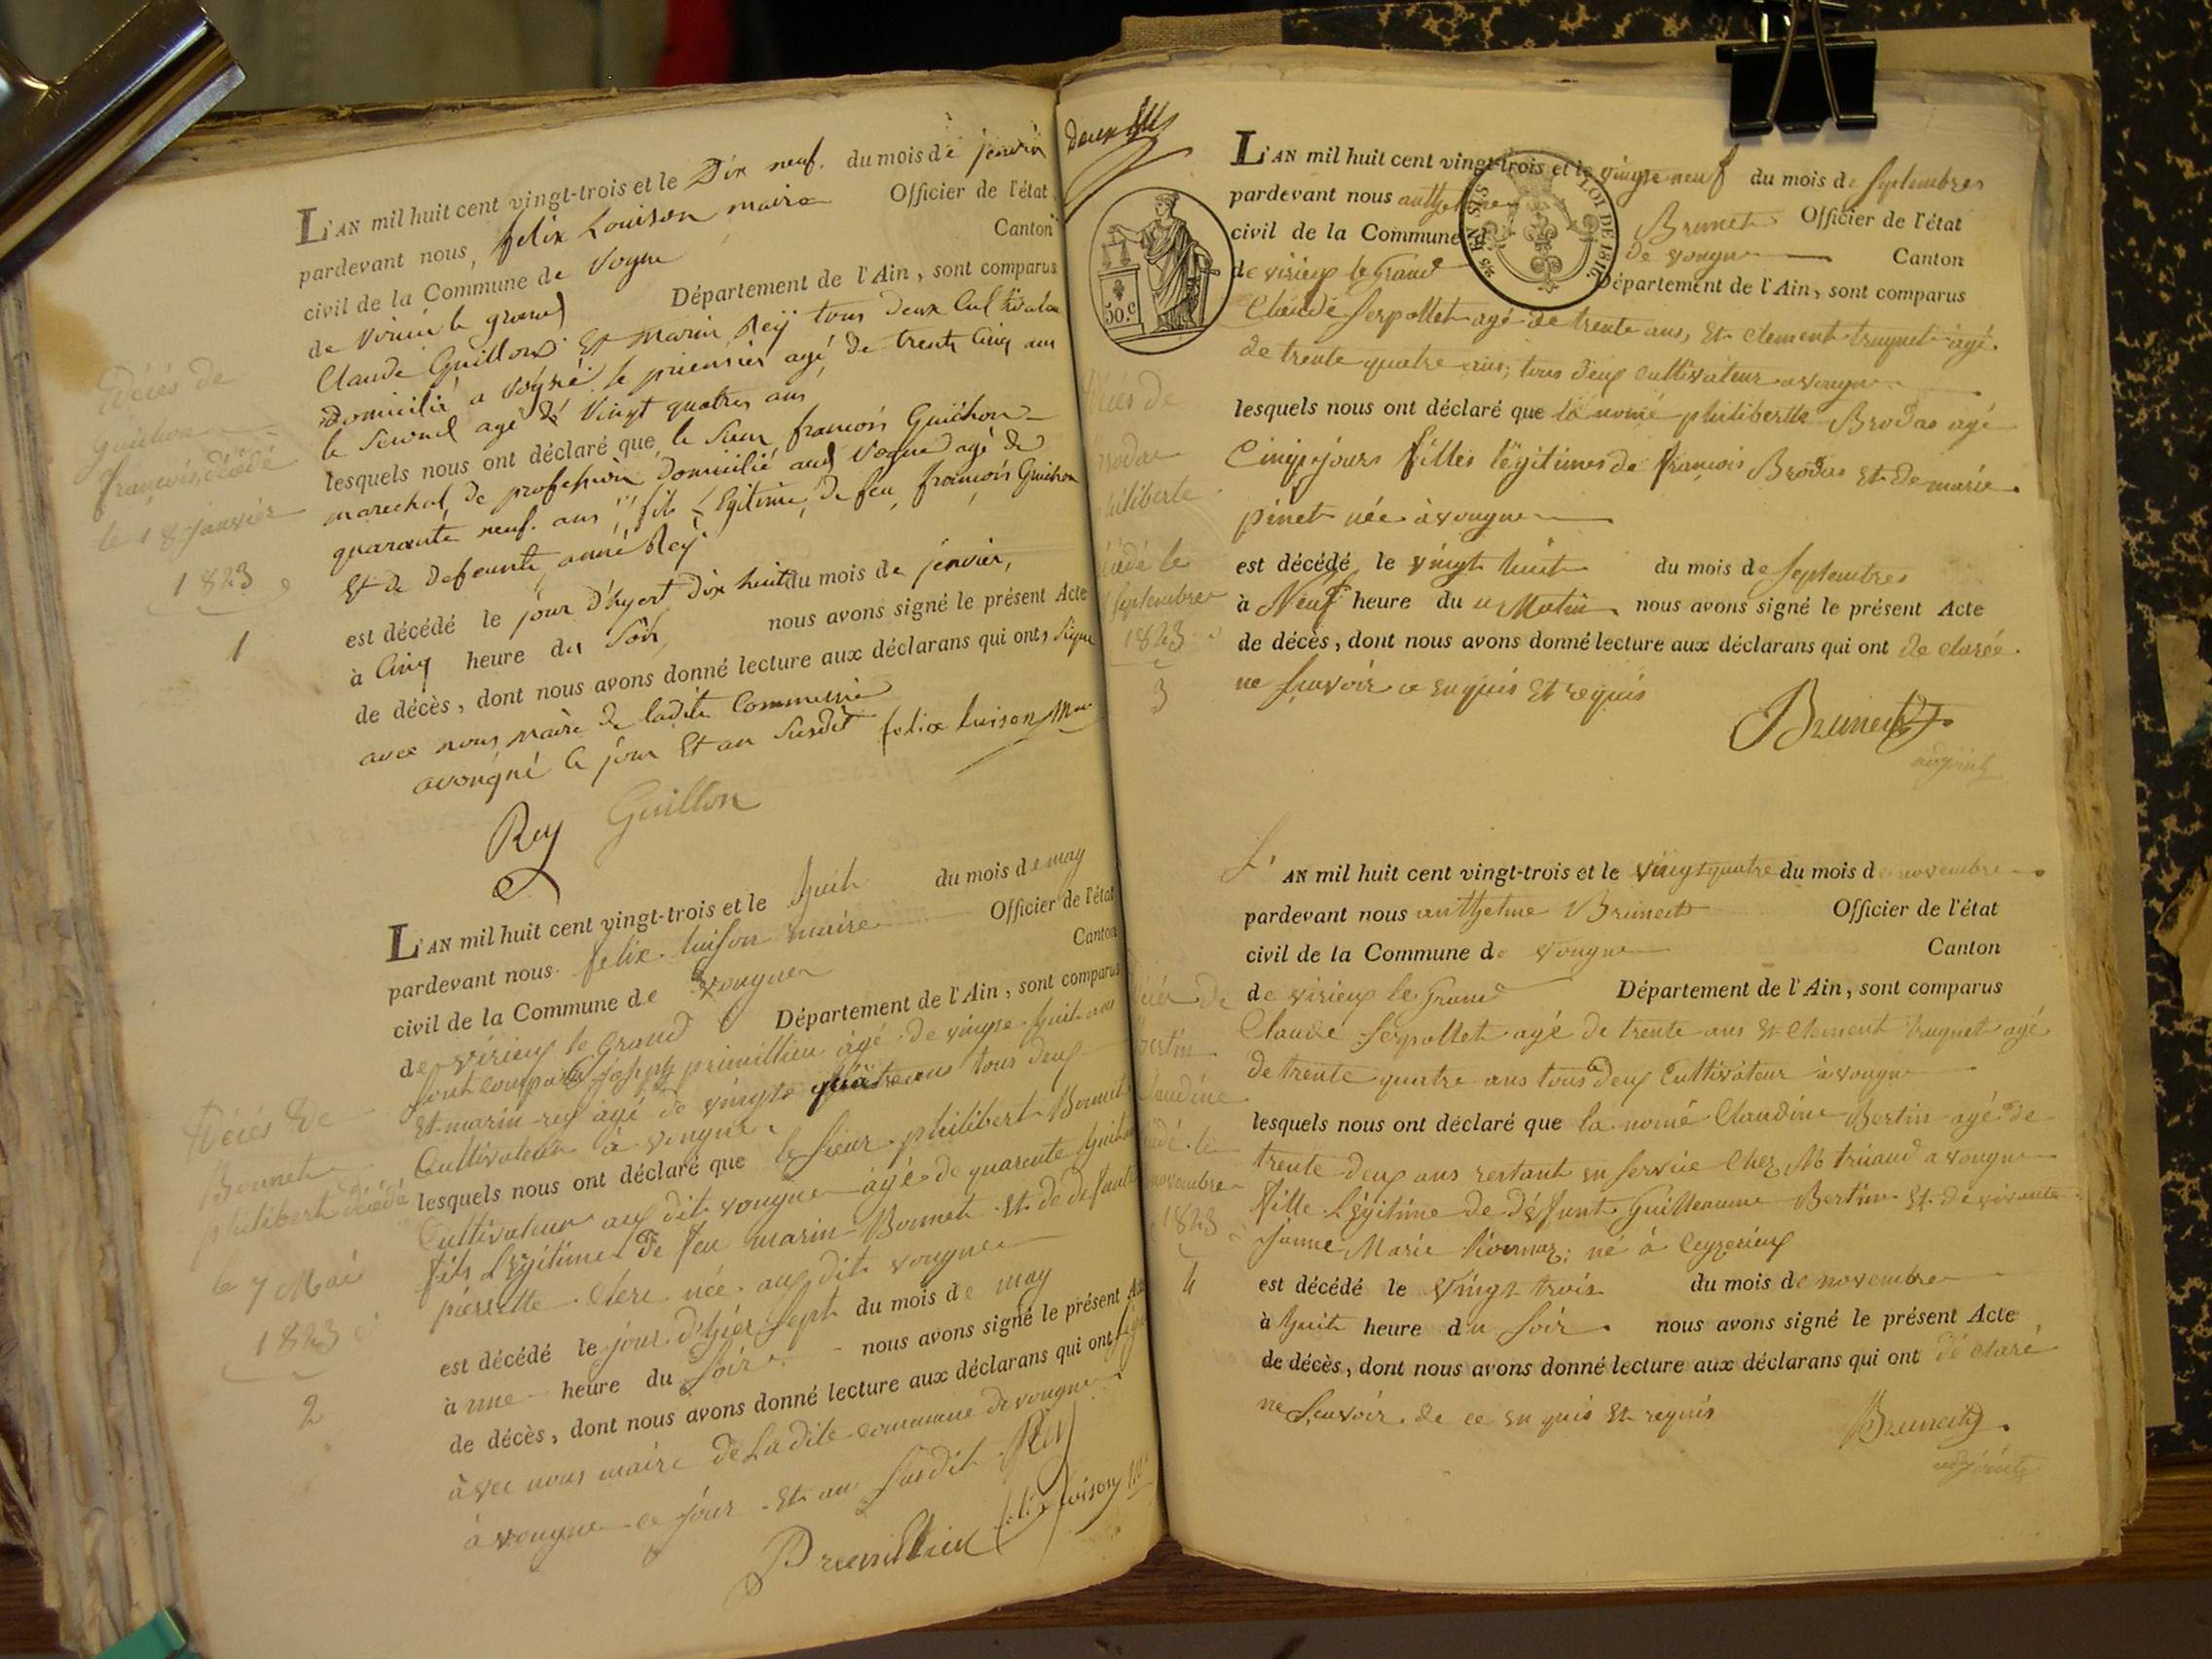 Décés de
guichon
francois, décédé
le 18 janvier
1823
1
L'AN mil huit cent vingt-trois et le Dix neuf. du mois de janvier
pardevant nous, felix Louison maire Officier de l'état
civil de la Commune de Vogne Canton
de Virieu le grand Département de l'Ain, sont comparus
Claude Guillon Et Marin Reÿ tous deux Cultivateu
Domicilié a Vogne le premier agé de trente Cinq ans
le second agé de Vingt quatres ans
lesquels nous ont déclaré que le sieur francois Guichon
marechal de profession Domicilié aud Vogne agé de
quarante neuf. ans, fils Légitime, de feu francois Guichon
Et de defeunte anne Reÿ
est décédé le jour d'hyert dix huit du mois de janvier,
à Cinq heure du Soir nous avons signé le présent Acte
de décès, dont nous avons donné lecture aux déclarans qui ont, signe
avec nous maire de ladite Commune
avongne le jour Et an susdit felix luison
Rey Guillon
Décés de
Bonnet
philibert décédé
le 7 Mai
1823
2
L'AN mil huit cent vingt-trois et le huit du mois de may
pardevant nous felix luison maire Officier de l'état
civil de la Commune de vongne Canton
de virieux le Grand Département de l'Ain, sont comparus
sont comparu joseph primillieu agé de vingte huit ans
Et marin rey agé de vingte quatre ans tous deux
Cultivateur a vongne
lesquels nous ont déclaré que le sieur philibert Bonnet
Cultivateur aux dit vongne agé de quarente huit
fils Légitime de feu marin Bonnet Et de defunte
pierrette Clerc née aux dit vongne
est décédé le jour d'hier sept du mois de may
à une heure du soir nous avons signé le présent Acte
de décès, dont nous avons donné lecture aux déclarans qui ont
avec nous maire de Ladite commune de vongne
à vongne ce jour Et an susdit Rey
Premillieu
Deux
50.c
LOI DE 1816.
L'AN mil huit cent vingt-trois et le vingte neuf du mois de septembres
pardevant nous anthelme Brunet Officier de l'état
civil de la Commune de vongne Canton
de virieux le Grand Département de l'Ain, sont comparus
Claude serpollet agé de trente ans, Et clement truquet agé
de trente quatre ans; tous deux cultivateur a vongne
lesquels nous ont déclaré que la nomé philiberthe Brodas agé
Cinqe jours filles légitimes de francois Brodas Et de marie
pinet née à vongne
est décédé le vingt huit du mois de septembres
à Neuf heure du Matin nous avons signé le présent Acte
de décès, dont nous avons donné lecture aux déclarans qui ont de clarée
ne sçavoir ce enquis Et requis
Brunet
adjoint
Décés de
Brodas
philiberte
décédé le
septembre
1823
3
L'AN mil huit cent vingt-trois et le vingtquatre du mois de novembre
pardevant nous anthelme Brunet Officier de l'état
civil de la Commune de vongne Canton
de virieux le Grand Département de l'Ain, sont comparus
Claude serpollet agé de trente ans Et clement truquet agé
de trente quatre ans tous deux Cultivateur à vongne
lesquels nous ont déclaré que la nomé Claudine Bertin agé de
trente deux ans restant en service Chez M truand a vongne
fille Légitime de défunt Guilleaume Bertin Et de vivante
janne Marie né à Ceyzerieux
est décédé le Vingt trois du mois de novembre
à huit heure du soir nous avons signé le présent Acte
de décès, dont nous avons donné lecture aux déclarans qui ont dé claré
ne sçavoir de ce en quis Et requis
Brunet
adjoint
Bertin
Claudine
novembre
1823
4